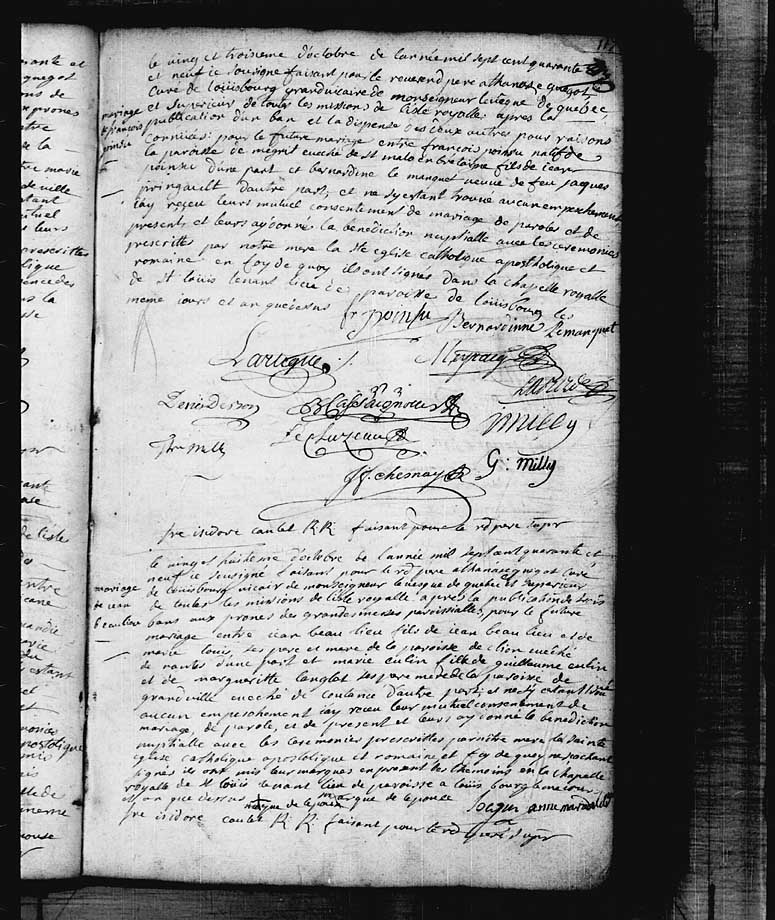 le vingt et troisieme d'octobre de lannée mil sept cent quarante
et neuf ie sousigné faisant pour le reverend pere athanase guegot
curé de louisbourg grand vicaire de monseigneur leveque de quebec
et superieur de toutes les missions de lisle royalle apres la
publication d'un ban et la dispense des deux autres pour raisons
mariage
de françois
poinsu
connües pour le future mariage entre françois poinsu natif de
la paroisse de megrit eveché de st malo en bretaigne fils de iean
poinsu d'une part et bernardine le manquet veuve de feu jaques
pringault d'autre part, et ne s'y estant trouvé aucun empechement
iay reçeu leurs mutuel consentement de mariage de paroles et de
present, et leurs ay donné la benediction nuptialle avec les ceremonies
prescrittes par notre mere la ste eglise catholique apostholique et
romaine en foy de quoy ils ont signés dans la chapelle royalle
de st louis tenant lieu de paroisse de louisbourg les
meme iours et an que dessus
fr poinsu Bernardinne Lemanquet
Larüque
Denis Derson
Milly
Lecluzeau
G: Milly
chesnay
fre isidore caulet R.R. faisant pour le rd pere supr
le vingt huitieme d'octobre de l'annee mil sept cent quarante et
neuf ie sousigné faisant pour le rd pere athanase guegot curé
mariage
de iean
beaulieu
de louisbourg vicair de monseigneur leveque de quebec et superieur
de toutes les missions de lisle royalle apres la publication de trois
bans aux prones des grandes messes parroissialles, pour le future
mariage entre iean beau lieu fils de iean beau lieu et de
marie louis, ses pere et mere de la paroisse de clion eveché
de nantes d'une part et marie culin fille de guillaume culin
et de margueritte langlot ses pere mere de la paroisse de
grandville eveché de coutance d'autre part, et ne s'y estant trouvé
aucun empeschement iay reçeu leur mutuel consentement de
mariage, de parole, et de present et leurs ay donné la benediction
nuptialle avec les ceremonies prescrittes par notre mere la sainte
eglise catholique apostolique et romaine, et foy de quoy ne sachant
signés ils ont mis leur marques en present les themoins en la chapelle
royalle de st louis tenant lieu de paroisse a louisbourg le meme iours
et an que dessus
marque de lepoux marque de lepouse
fre isidore caulet R. R. faisant pour le rd pere supr